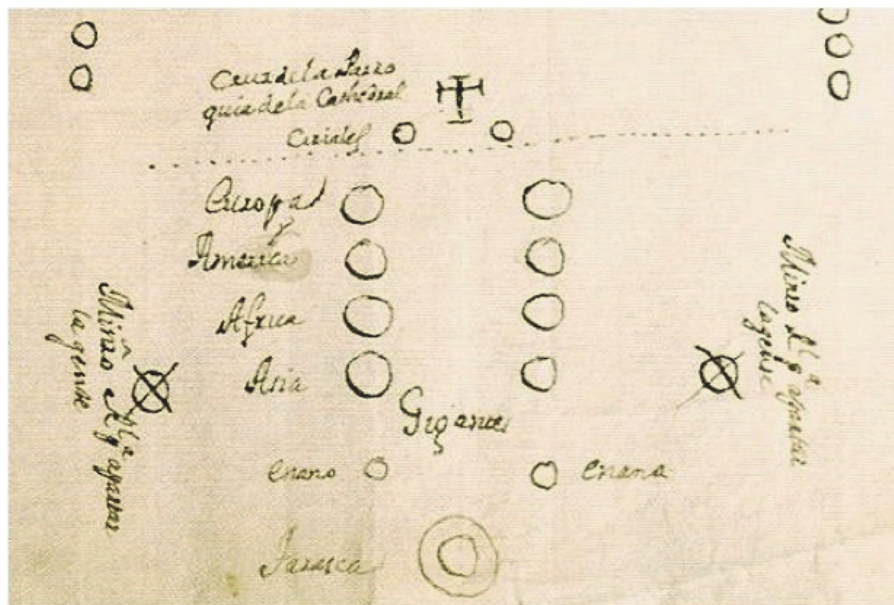 Cruz de la Parro
quia de la Cathedral
Ciriales
Europa
America
Africa
Asia
Gigantes
Enano
Enana
Tarasca
Minro Rl pa apartar
la gente
Minro Rl pa apartar
la gente